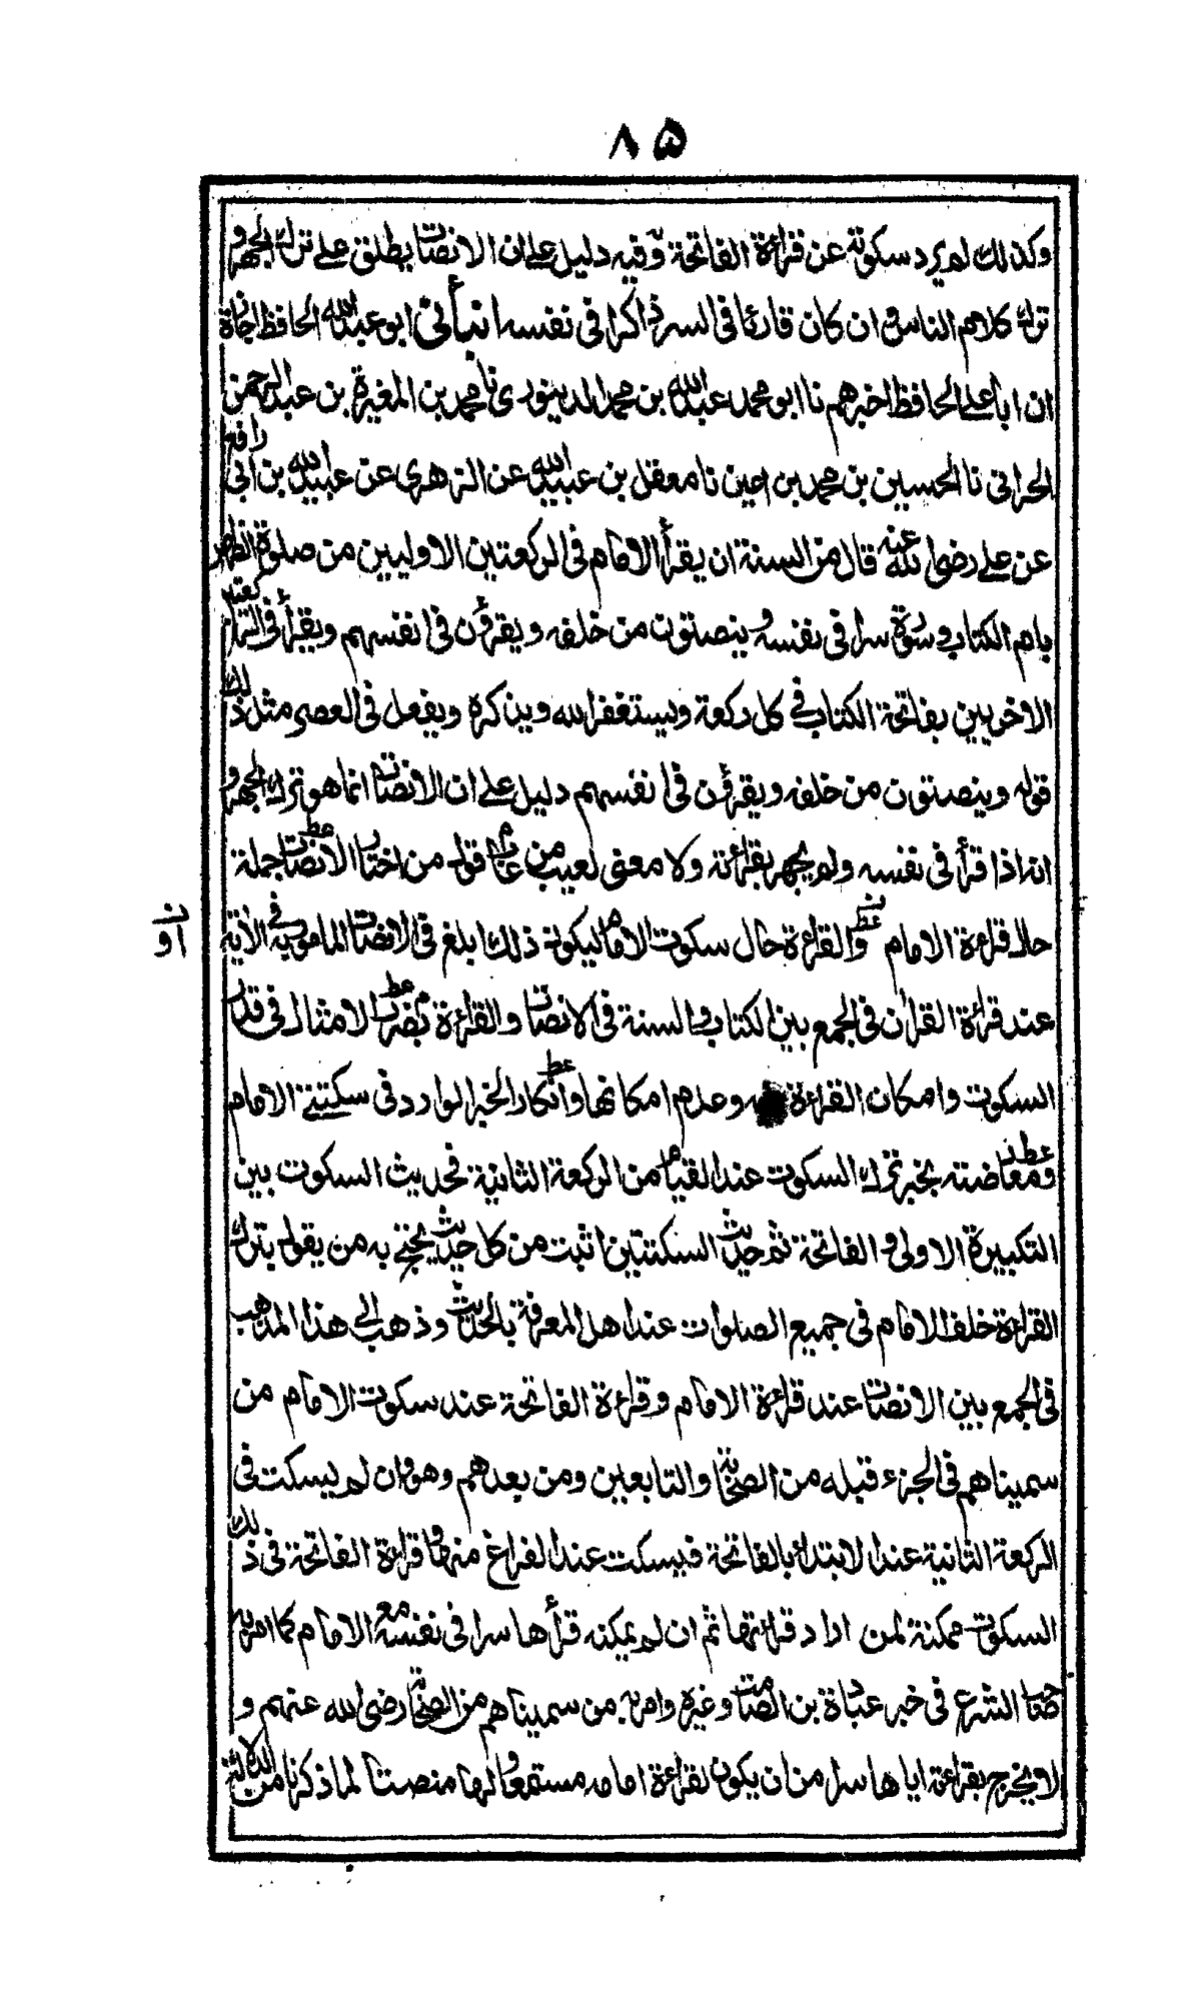 ٨٥
وكذلك لم يرد سكوته عن قراءة الفاتحة وفيه دليل على ان الانصات يطلق على ترك الجهر و
ترك كلام الناس وان كان قارئا فى السر ذاكرا فى نفسه انبأنى ابو عبد الله الحافظ اجازة
ان ابا على الحافظ اخبرهم نا ابو محمد عبد الله بن محمد الدينورى نا محمد بن المغيرة بن عبد الرحمن
الحرانى نا الحسين بن محمد بن اعين نا معقل بن عبيد الله عن الزهرى عن عبيد الله بن ابى رافع
عن على رضى الله عنه قال من السنة ان يقرأ الامام فى الركعتين الاوليين من صلوة الظهر
بام الكتاب وسورة سرا فى نفسه و ينصتون من خلفه ويقرؤن فى انفسهم ويقرأ فى الركعتين
الاخريين بفاتحة الكتاب فى كل ركعة ويستغفر الله ويذكره ويفعل فى العصر مثل ذلك
قوله وينصتون من خلفه ويقرؤن فى انفسهم دليل على ان الانصات انما هو ترك الجهر و
انه اذا قرأ فى نفسه ولم يجهر بقراءته ولا معنى لعيب من عاب قول من اختار الانصات جملة
حال قراءة الامام والقراءة حال سكوت الامام ليكون ذلك ابلغ فى الانصات المامور به فى الاية
او
عند قراءة القران فى الجمع بين الكتاب والسنة فى الانصات والقراءة بضرب الامثال فى قدر
السكوت وامكان القراءة وعدم امكانها وانكار الخبر الوارد فى سكتتى الامام
ومعارضته بخبر ترك السكوت عند القيام من الركعة الثانية فحديث السكوت بين
التكبيرة الاولى والفاتحة ثم حديث السكتتين اثبت من كل حديث يحتج به من يقول بترك
القراءة خلف الامام فى جميع الصلوات عند اهل المعرفة بالحديث وذهب الى هذا المذهب
فى الجمع بين الانصات عند قراءة الامام وقراءة الفاتحة عند سكوت الامام من
سميناهم فى الجزء قبله من الصحابة والتابعين ومن بعدهم وهو وان لم يسكت فى
الركعة الثانية عند الابتداء بالفاتحة فيسكت عند الفراغ منها وقراءة الفاتحة فى ذلك
السكوت ممكنة لمن اراد قراءتها ثم ان لم يمكنه قرأها سرا فى نفسه مع الامام كما امر به
صاحب الشرع فى خبر عبادة بن الصامت وغيره وامر به من سميناهم من الصحابة رضى الله عنهم و
لا يخرج بقراءته اياها سرا من ان يكون لقراءة امامه مستمعا ولها منصتا لما ذكرنا من الدلالة